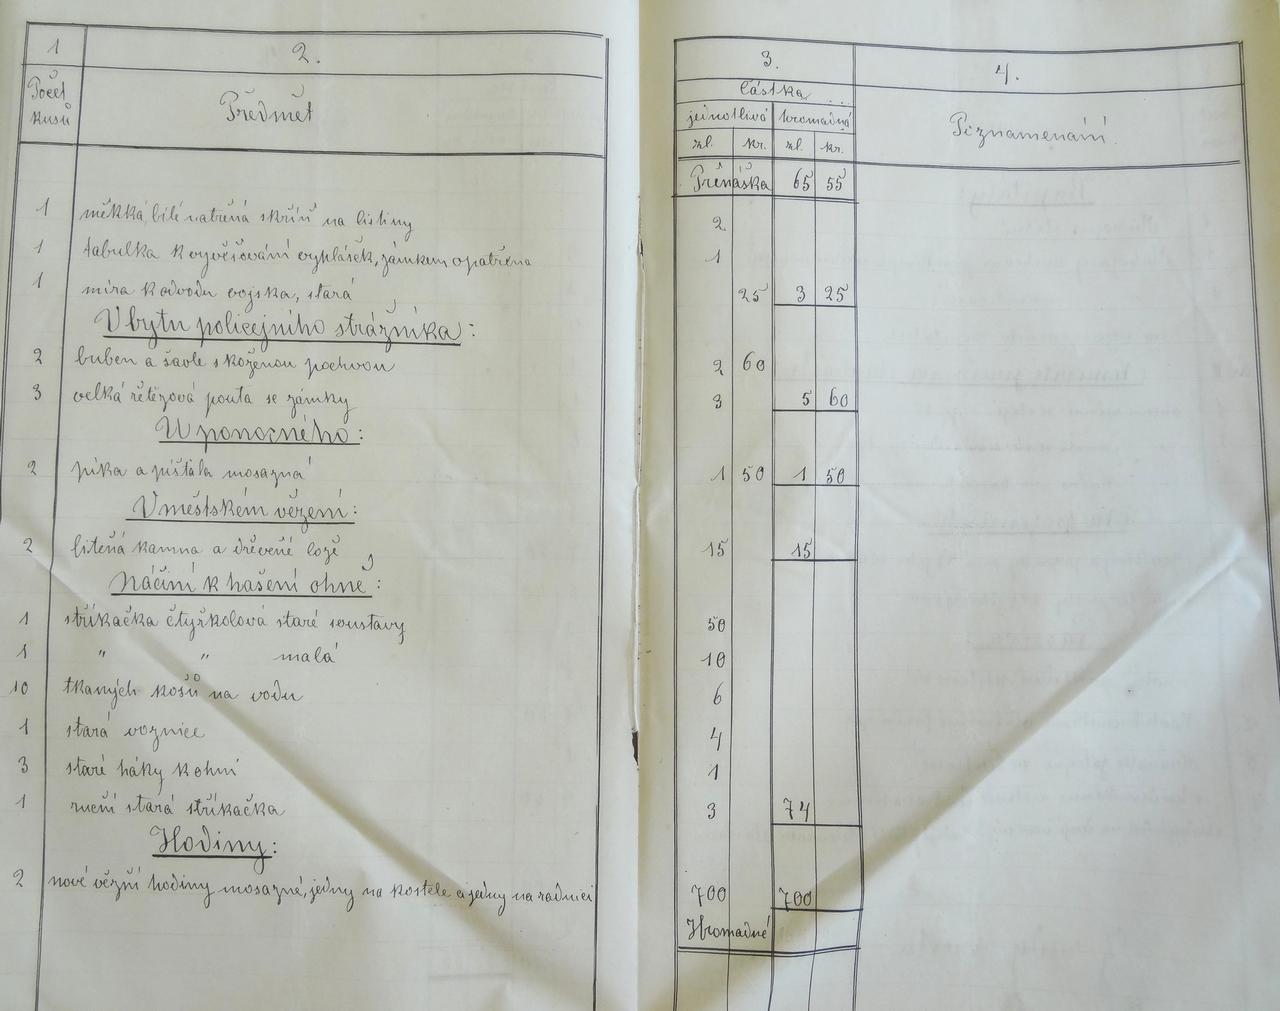 1 2. 3. 4.
Počet kusů Předmět částka Poznamenání
jednotlivá hromadná
zl. kr. zl. kr.
Přenáška 65 55
1 měkká, bílé natřená skříň na listiny 2
1 tabulka k vyvěšování vyhlášek, zámkem opatřena 1
1 míra k odvodu vojska, stará 25 3 25
V bytu policejního strážníka:
2 buben a šavle s koženou pochvou 2 60
3 velká řětězová pouta se zámky 3 5 60
U ponocného:
2 píka a píšťala mosazná 1 50 1 50
V městském vězení:
2 litená kamna a dřevěné lože 15 15
Náčiní k hašení ohně:
1 stříkačka čtyřkolová staré soustavy 50
1 " " malá 10
10 tkaných košů na vodu 6
1 stará voznice 4
3 staré háky k ohni 1
1 ruční stará stříkačka 3 74
Hodiny:
2 nové věžní hodiny mosazné, jedny na kostele a jedny na radnici 700 700
Hromadně